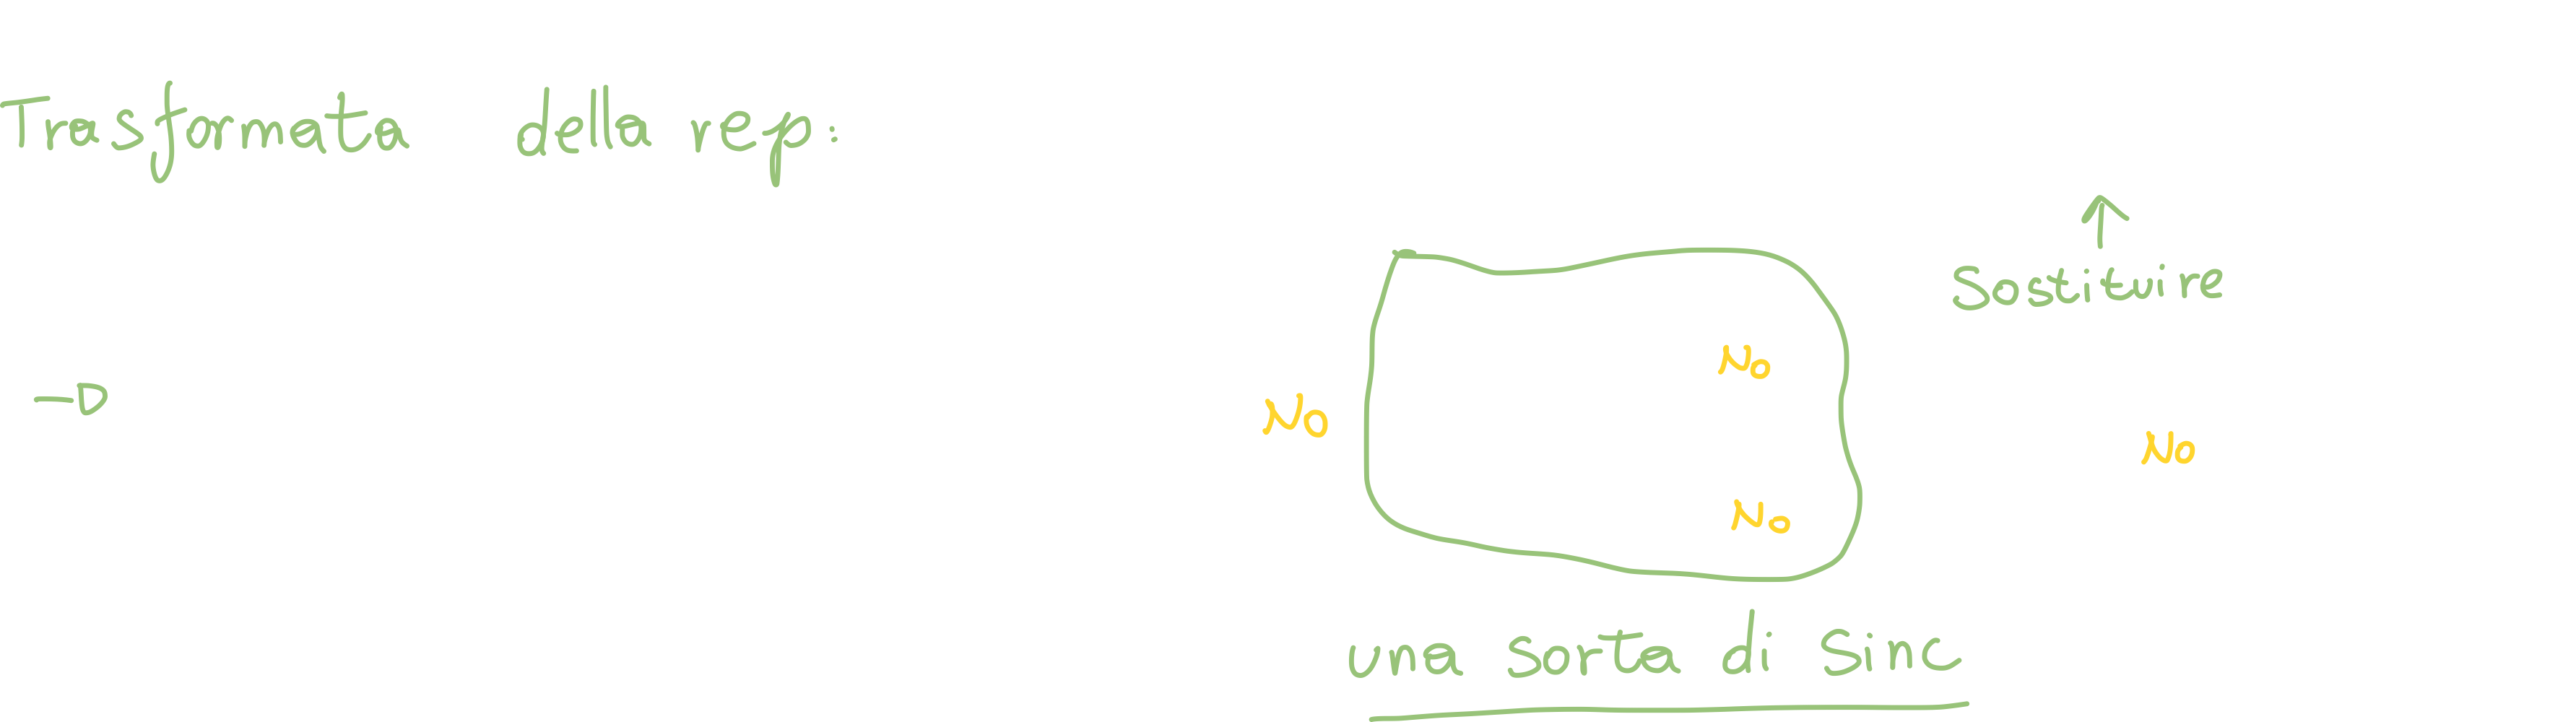 Trasformata della rep:
Sostituire
No
No
No
No
una sorta di Sinc